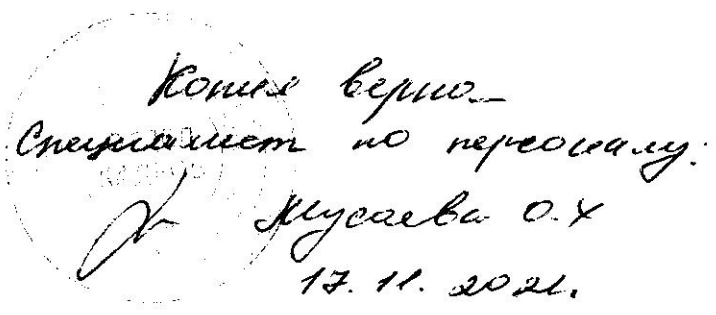 Копия верна
Специалист по персоналу:
Мусаева О.Х
17.11.2021.